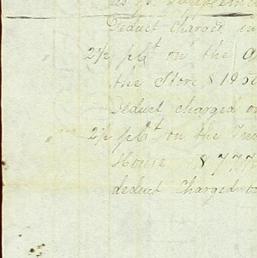 Deduct Charged in
2½ pCt on the A
the Store $ 1950
Deduct charged on
2½ pCt on the
House $ 777
deduct Charged